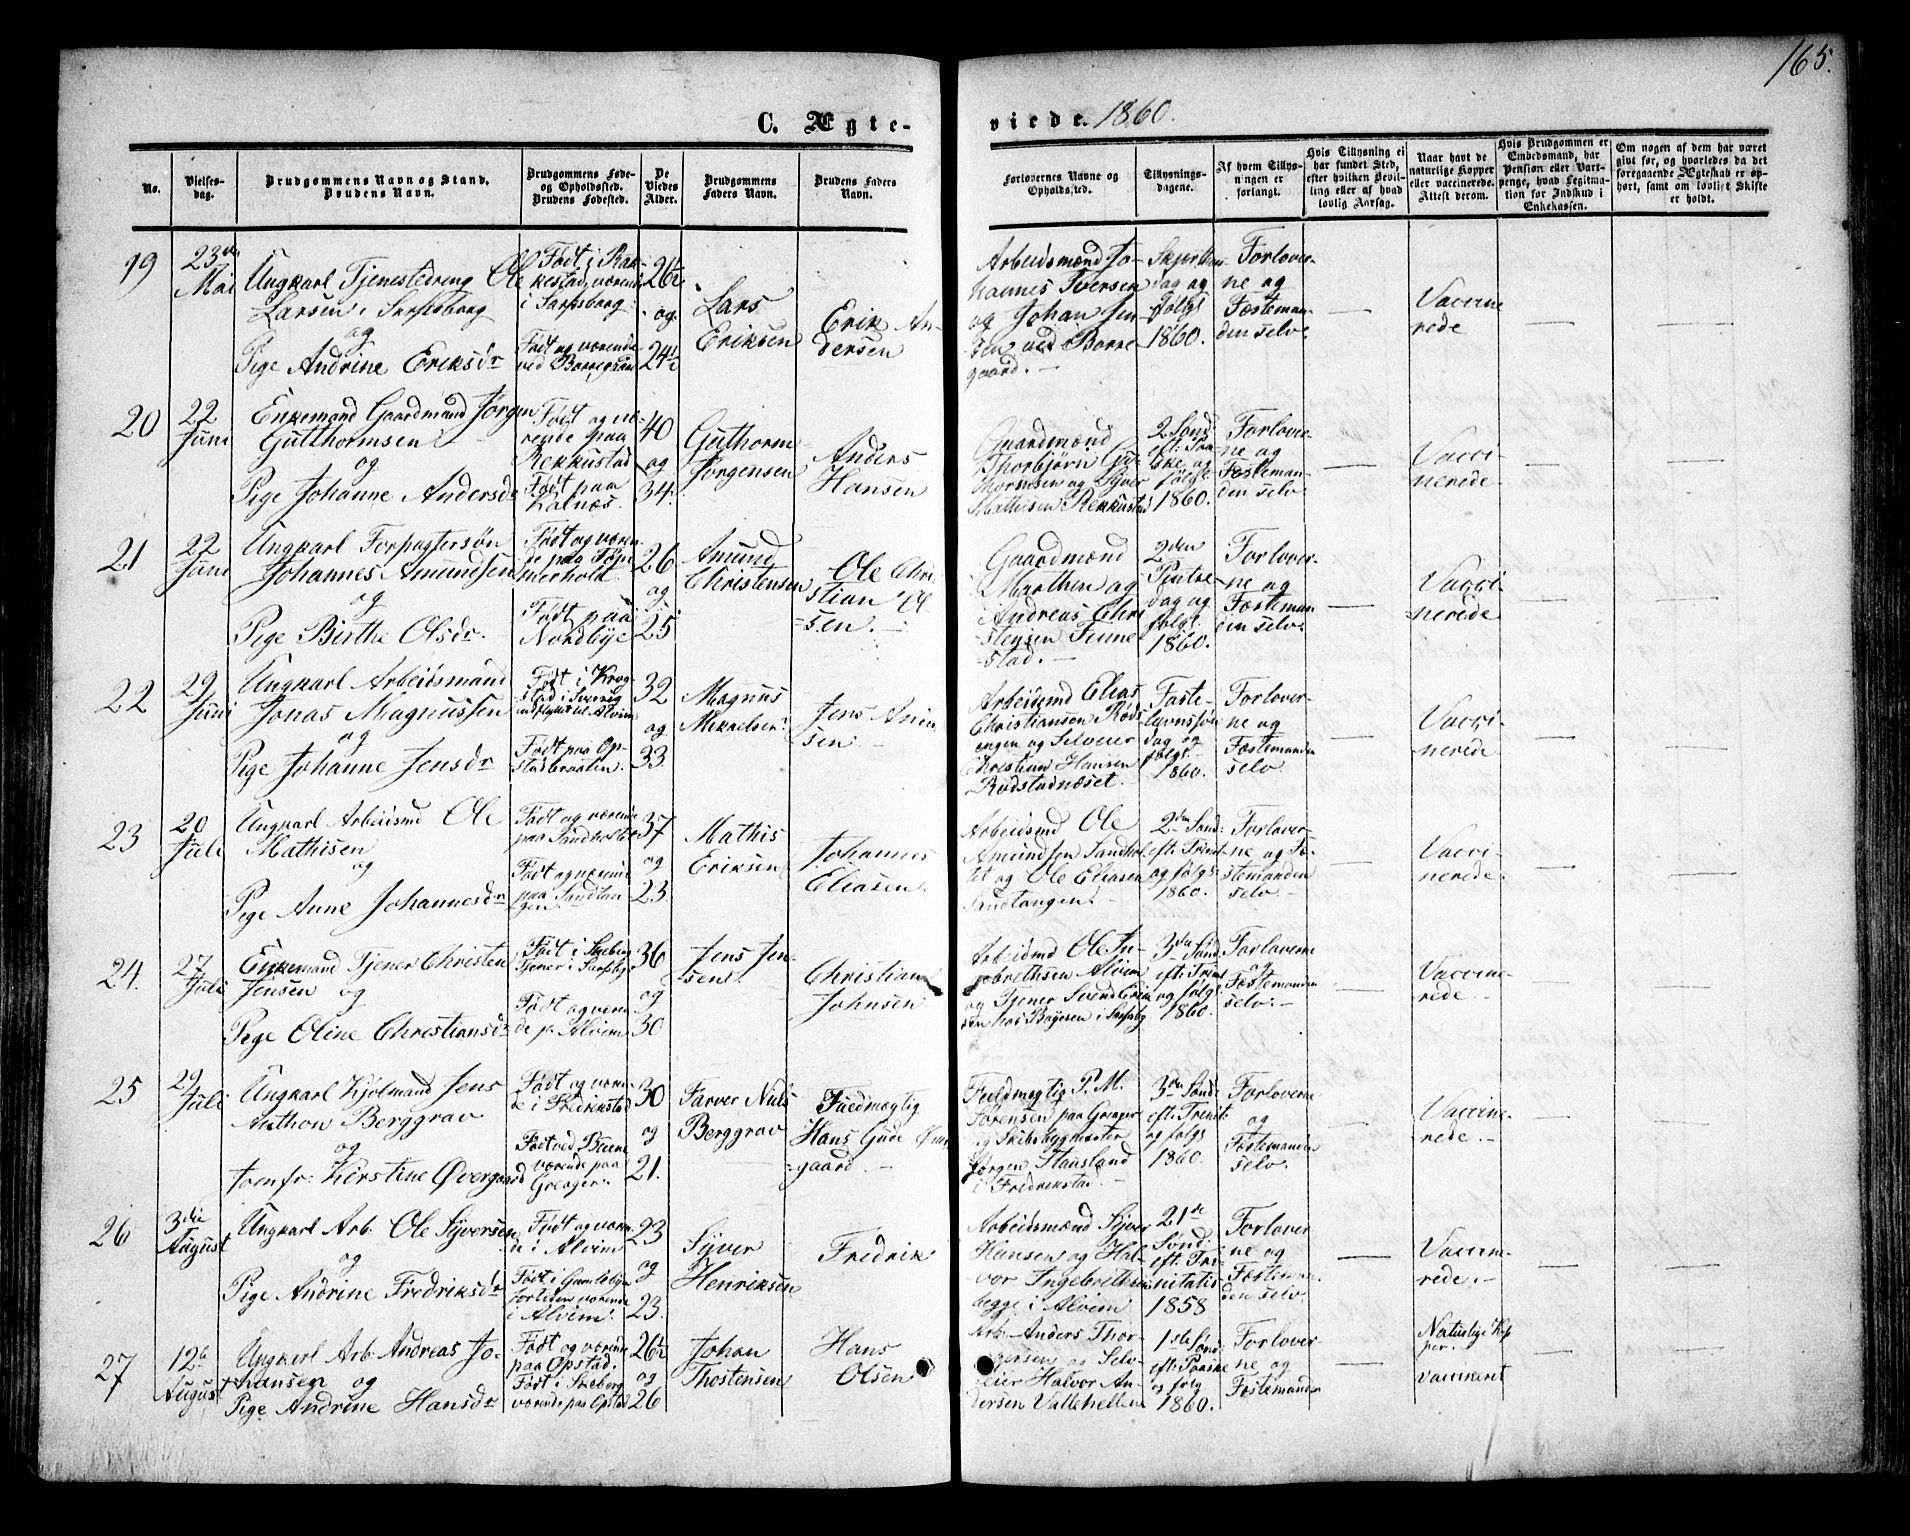 165.
C. Ægte-
viede. 1860.
No.
Vielses-
dag.
Brudgommens Navn og Stand.
Brudens Navn.
Brudgommens Føde-
og Opholdssted.
Brudens Fødested.
De
Viedes
Alder.
Brudgommens
Faders Navn.
Brudens Faders
Navn.
Forlovernes Navne og
Opholdssted.
Tillysnings-
dagene.
Af hvem Tillys-
ningen er
forlangt.
Hvis Tillysning ei
har fundet Sted,
efter hvilken Bevil-
ling eller af hvad
lovlig Aarsag.
Naar havt de
naturlige Kopper
eller vaccinerede.
Attest derom.
Hvis Brudgommen er
Embedsmand, har
Pension eller Vart-
penge, hvad Legitima-
tion for Indskud i
Enkekassen.
Om nogen af dem har været
givt før, og hvorledes da det
foregaaende Ægteskab er op-
hørt, samt om lovligt Skifte
er holdt.
19
23de
Mai
Ungkarl Tjenestedreng Ole
Larsen i Sarpsborg
og
Pige Andrine Eriksdr
Født i Rak-
kestad, værende
i Sarpsborg
Født og værende
ved Borregaard
26½
og
24½
Lars
Eriksen
Erik An-
dersen
Arbeidsmænd Jo-
hannes Iversen
og Johan Jen-
sen ved Borre
gaard. -
Skjærthor
dag og
følgs
1860.
Forlover-
ne og
Fæsteman-
den selv
Vaccine
rede
20
22
Juni
Enkemand Gaardmand Jørgen
Gutthormsen
og
Pige Johanne Andersdr
Født og væ-
rende paa
Rekkustad
Født paa
Kalnæs.
40
og
34.
Guthorm
Jørgensen
Anders
Hansen
Gaardmænd
Thorbjørn Gut-
thormsen og Syver
Mathisen Rekkustad
2 Sønd
eft: Paa
ske og
følgs
1860.
Forlover-
ne og
Fæsteman-
den selv
Vacci-
nerede
21
22
Juni
Ungkarl Forpagtersøn
Johannes Amundsen
og
Pige Birthe Olsdr.
Født og væren-
de paa Tøm
merholt
Født paa
Nordbye
26
og
25
Amund
Christensen
Ole Chri-
stian Ol-
sen.
Gaardmænd
Marthin og
Andreas Chri
stensen Finne
stad. -
2den
Pintse
dag og
følgs
1860.
Forlover-
ne og
Fæsteman
den selv.
Vacci-
nerede
22
29
Juni
Ungkarl Arbeidsmand
Jonas Magnussen
og
Pige Johanne Jensdr
Født i Krog-
stad i Sverig
indflyttet til Alvim
Født paa Op-
stadbraaten.
32
og
33
Magnus
Mikkelsen
Jens Ani
sen
Arbeidsmd Elias
Christiansen Røds
engen og Selveier
Christian Hansen
Rødstadnæset.
Faste-
lavnssøn
dag og
følgs
1860.
Forlover-
ne og
Fæstemanden
selv
Vacci-
nerede
23
20
Juli
Ungkarl Arbeidsmd Ole
Mathisen
og
Pige Anne Johannesdr
Født og værende
paa Sandholtet
Født og værende
paa Sandtan
gen
37
og
23
Mathis
Eriksen
Johannes
Eliasen
Arbeidsmd Ole
Amundsen Sandhol
tet og Ole Eliasen
Sandtangen
2den Sønd:
eft. Trinit
og følgs
1860.
Forlover-
ne og Fæ-
stemanden
selv
Vacci-
nerede
24.
27
Juli
Enkemand Tjener Christen
Jensen og
Pige Oline Christiansdr
Født i Skeberg
Tjener i Sarpsbg
Født og væren
de p. Alvim
36
og
30
Jens Jen-
sen
Christian
Johnsen
Arbeidsmd Ole In-
gebrethsen Alvim
og Tjener Svend Erik
sen hos Bøyesen i Sarpsbg
3die Sønd
eft: Trinit
og følgs.
1860.
Forloverne
og
Fæstemanden
selv. -
Vaccine-
rede. -
25
29
Juli
Ungkarl Kjølmand Jens
Mathon Berggrav
og
Jomfr: Kirstine Øvergaard
Født og væren
de i Fredrikstad
Født ved Buene
værende paa
Greager.
30
og
21.
Farver Nils
Berggrav
Fuldmægtig
Hans Gude Øver
gaard. -
Fuldmægtig P. M.
Sørensen paa Greager
og Skibsbygmester
Jørgen Stausland
i Fredrikstad.
3die Sønd
eft. Trinit:
og følgs
1860.
Forloverne
og
Fæstemanden
selv.
Vaccine-
rede. -
26
3die
August
Ungkarl Arb. Ole Syversen
og
Pige Andrine Fredriksdr
Født og væren
de i Alvim
Født i Gamlebyen
fortiden værende
i Alvim.
23
og
23.
Syver
Henriksen
Fredrik
Arbeidsmænd Syver
Hansen og Hal-
vor Ingebrethsen
begge i Alvim
21de
Sønd:
eft. Tri-
nitatis
1858
Forlover
ne og
Fæsteman-
den selv.
Vaccine-
rede. -
27
12te
August
Ungkarl Arb. Andreas Jo-
hansen og
Pige Andrine Hansdr
Født og værende
paa Opstad.
Født i Skeberg
værende paa Opstad
26½
og
26
Johan
Thostensen
Hans
Olsen
Arb. Anders Thor-
gersen og Selv-
eier Halvor An-
dersen Vallehellen
1ste Sønd
eft. Paaske
og følg
1860.
Forlover
ne og
Fæstemanden
Naturlige Kop
per.
vaccineret